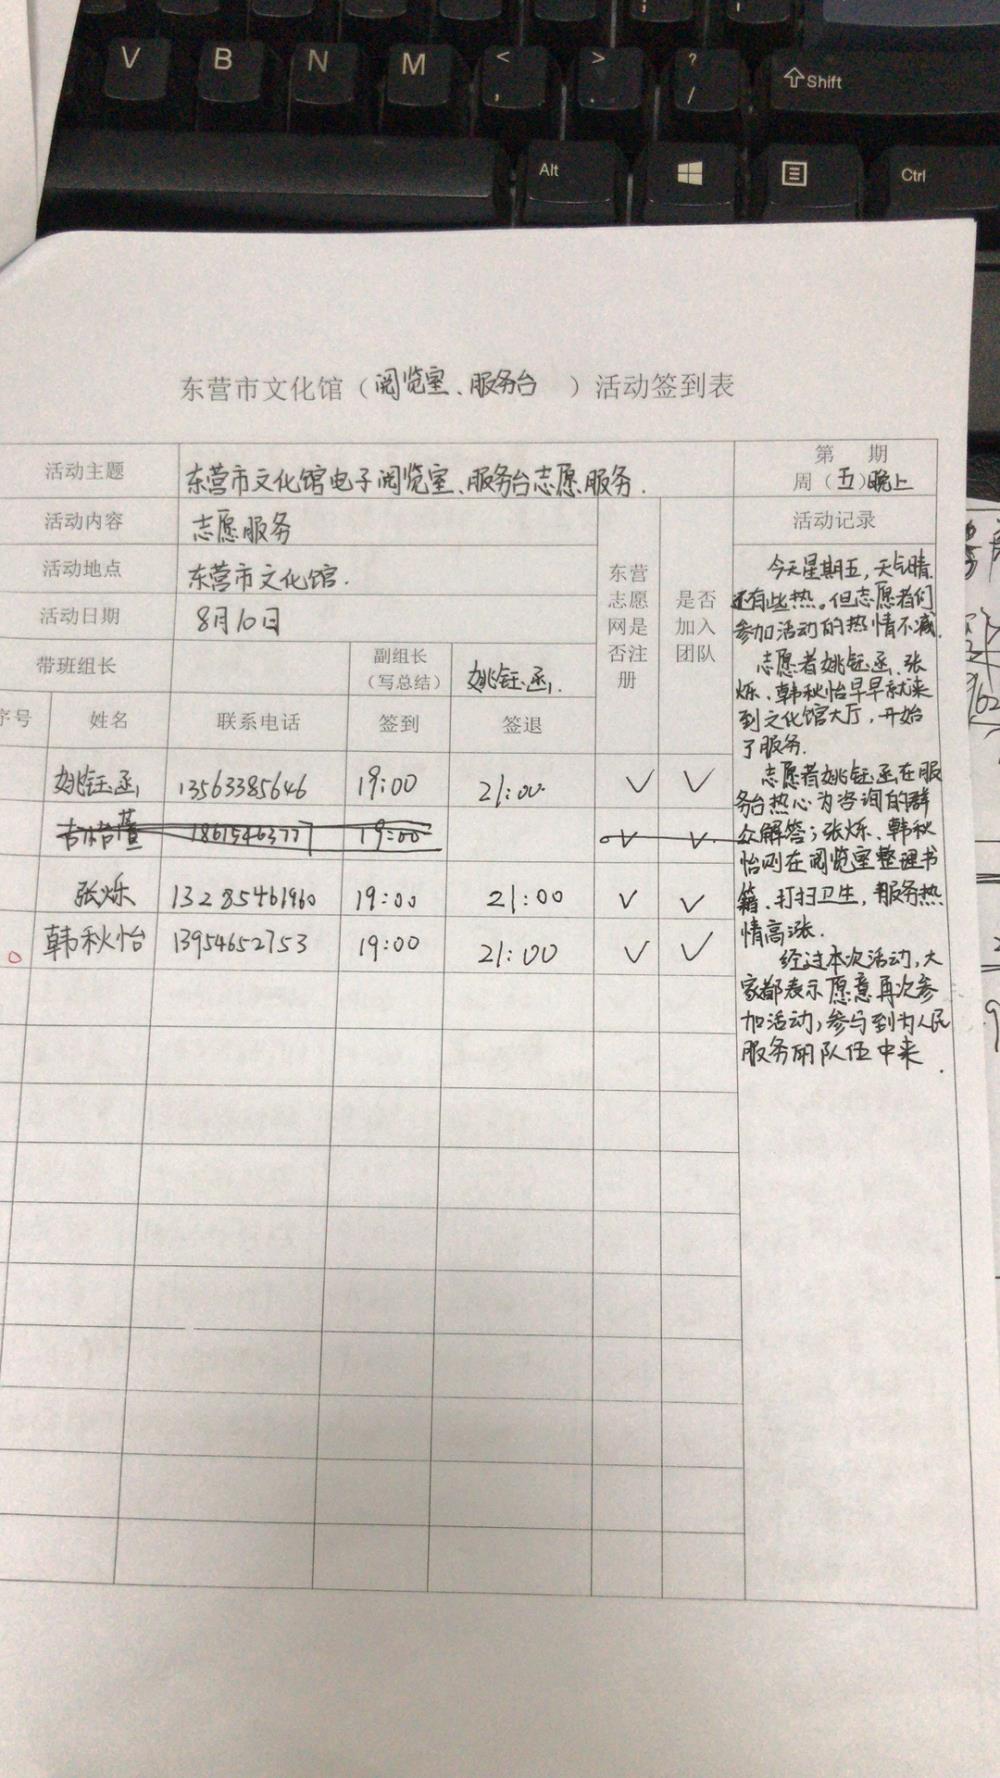 V B N M < , > . ? / Shift
Alt Ctrl
东营市文化馆（阅览室、服务台）活动签到表
活动主题 东营市文化馆电子阅览室、服务台志愿服务. 第 期
周（五）晚上
活动内容 志愿服务
活动地点 东营市文化馆.
活动日期 8月10日
带班组长 副组长（写总结） 姚钰函
东营志愿网是否注册
是否加入团队
序号 姓名 联系电话 签到 签退
姚钰函 13563385646 19:00 21:00 ✓ ✓
18615463777 19:00 ✓ ✓
张烁 13285461960 19:00 21:00 ✓ ✓
韩秋怡 13954652753 19:00 21:00 ✓ ✓
活动记录
今天星期五，天气晴.
还有些热。但志愿者们
参加活动的热情不减.
志愿者姚钰函、张
烁、韩秋怡早早就来
到文化馆大厅，开始
了服务.
志愿者姚钰函在服
务台热心为咨询的群
众解答；张烁、韩秋
怡则在阅览室整理书
籍、打扫卫生，服务热
情高涨.
经过本次活动，大
家都表示愿意再次参
加活动，参与到为人民
服务的队伍中来.